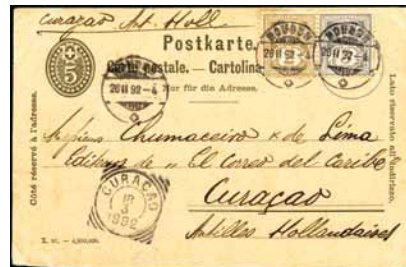 Curaçao Ant. Holl.
Postkarte.
Carte postale. — Cartolina
Nur für die Adresse.
5
26 II 92 - 4
Côté réservé à l'adresse.
Lato riservato all'indirizzo.
Messieurs Chumaceiro & de Lima
Editeurs de „ El Correo del Caribe
Curaçao
Antilles Hollandaises
CURAÇAO
18
3
1892